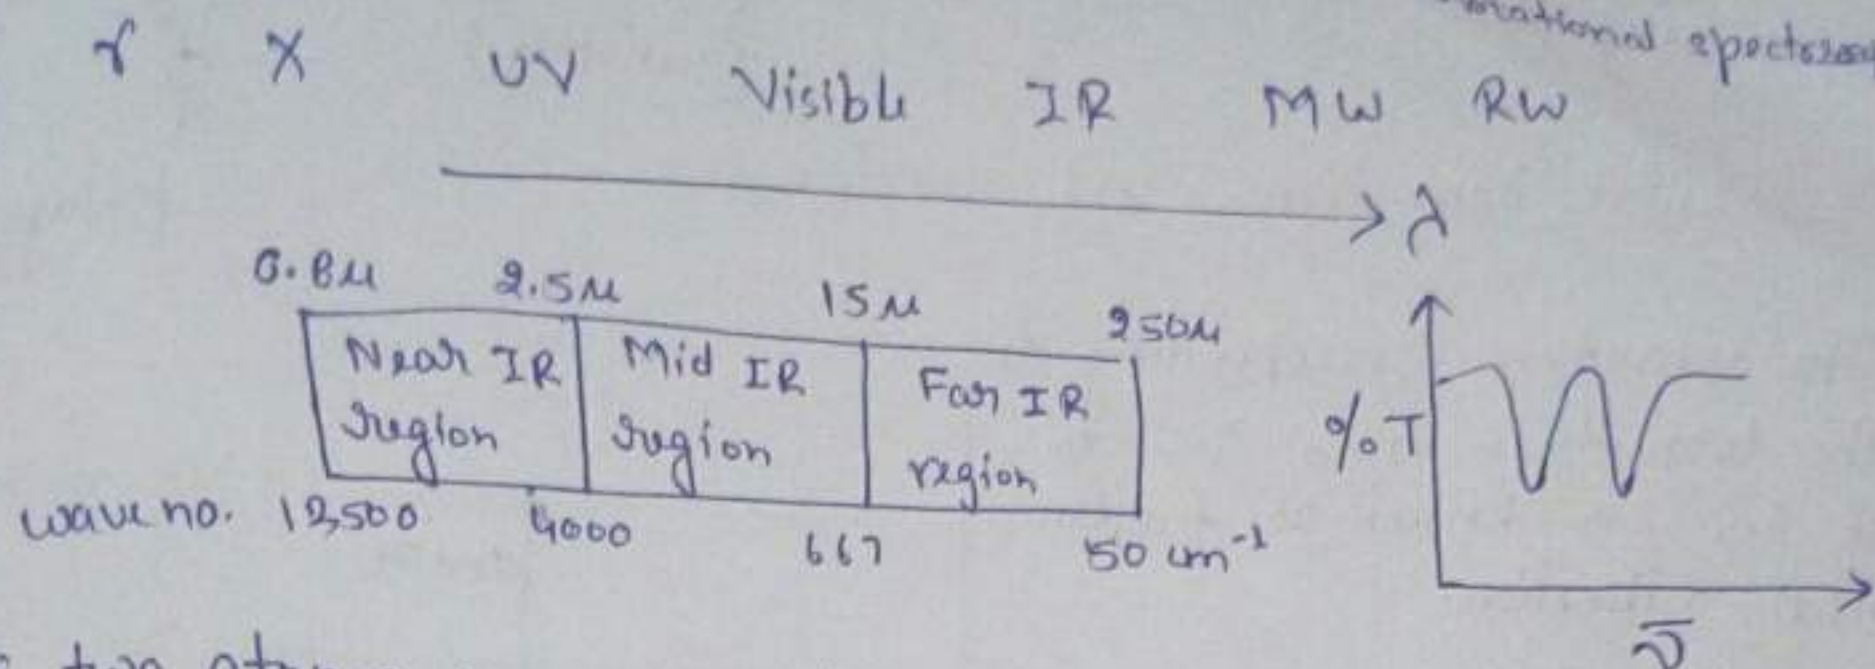 spectros
γ X UV Visible IR MW RW
λ
0.8μ 2.5μ 15μ 250μ
Near IR region
Mid IR region
Far IR region
wave no. 12,500 4000 667 50 cm⁻¹
%T
ν̄
two